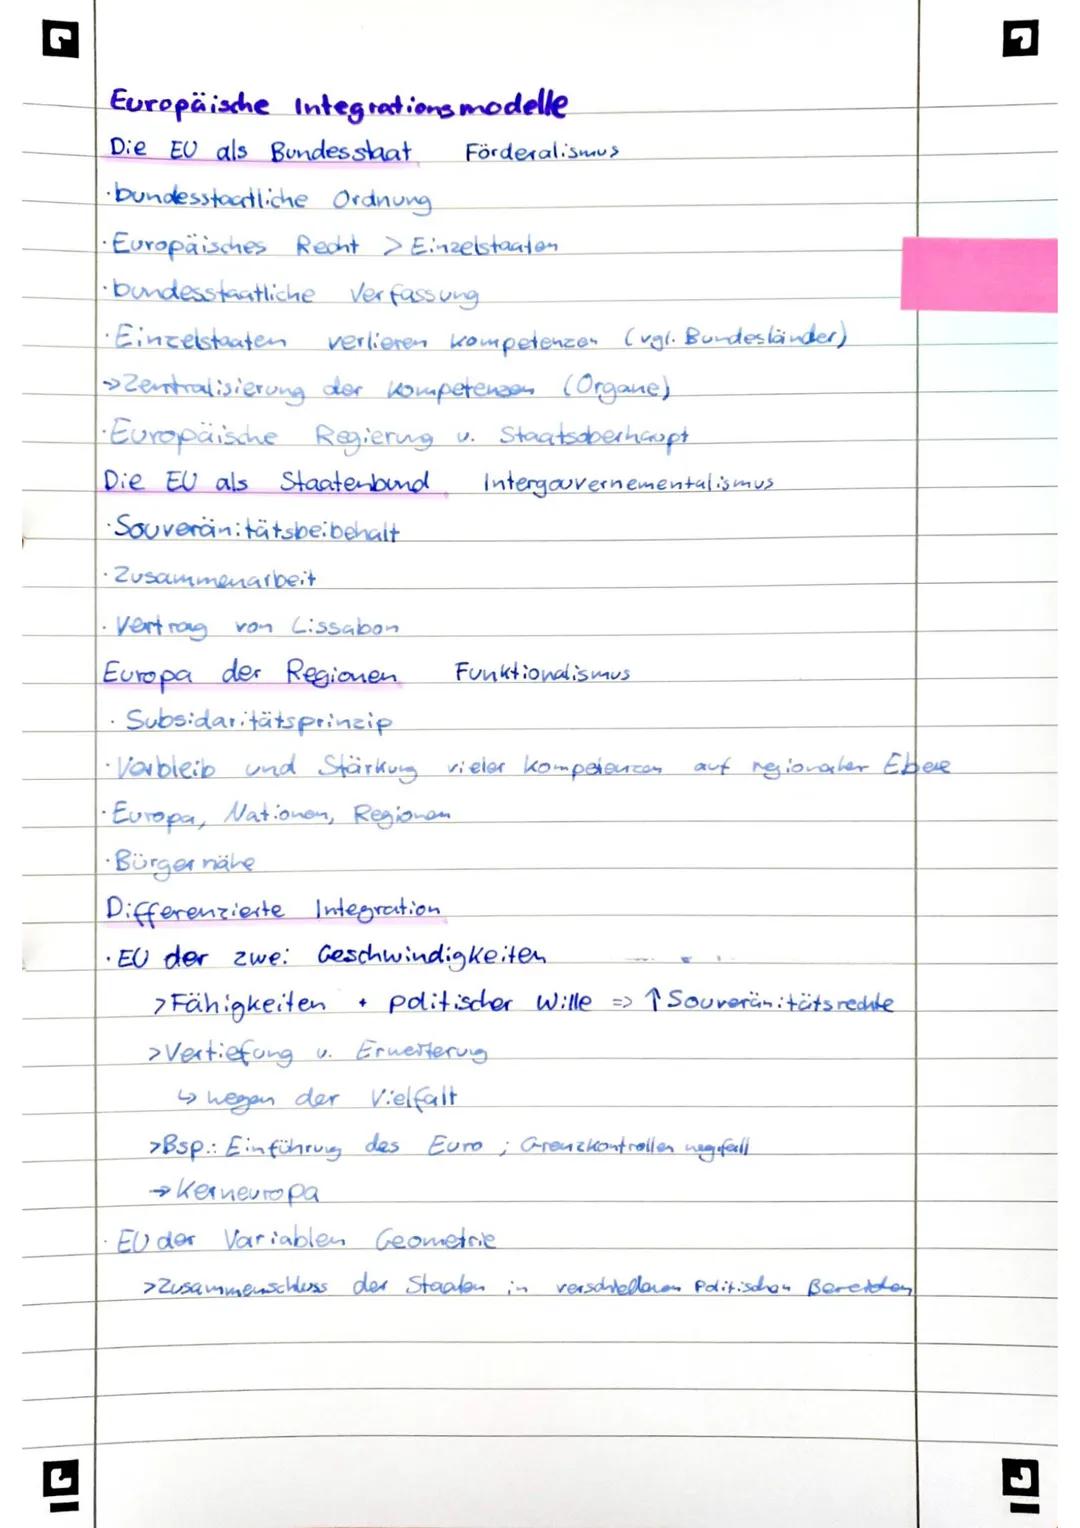 Europäische Integrationsmodelle
Die EU als Bundesstaat Förderalismus
·bundesstaatliche Ordnung
·Europäisches Recht > Einzelstaaten
·bundesstaatliche Verfassung
·Einzelstaaten verlieren Kompetenzen (vgl. Bundesländer)
→Zentralisierung der Kompetenzen (Organe)
·Europäische Regierung u. Staatsoberhaupt
Die EU als Staatenbund Intergouvernementalismus
·Souveränitätsbeibehalt
·Zusammenarbeit
·Vertrag von Lissabon
Europa der Regionen Funktionalismus
·Subsidaritätsprinzip
·Verbleib und Stärkung vieler Kompetenzen auf regionaler Ebene
·Europa, Nationen, Regionen
·Bürgernähe
Differenzierte Integration
·EU der zwei Geschwindigkeiten
>Fähigkeiten + politischer Wille => ↑ Souveränitätsrechte
>Vertiefung u. Erweiterung
↳ wegen der Vielfalt
>Bsp.: Einführung des Euro ; Grenzkontrollen wegfall
→Kerneuropa
·EU der Variablen Geometrie
>Zusammenschluss der Staaten in verschiedenen Politischen Bereichen